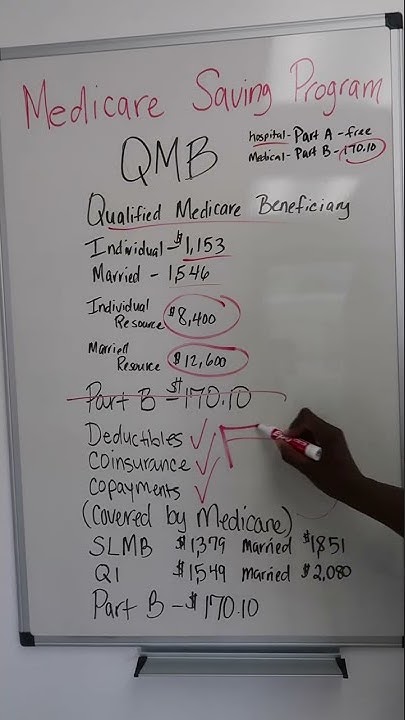 Medicare Saving Program
hospital - Part A - free
Medical - Part B - 170.10
QMB
Qualified Medicare Beneficiary
Individual - $1,153
Married - 1,546
Individual
Resource $8,400
Married
Resource $12,600
Part B - $170.10
Deductibles ✓
Coinsurance ✓
copayments ✓
(Covered by Medicare)
SLMB $1,379 married $1,851
QI $1,549 married $2,080
Part B - $170.10